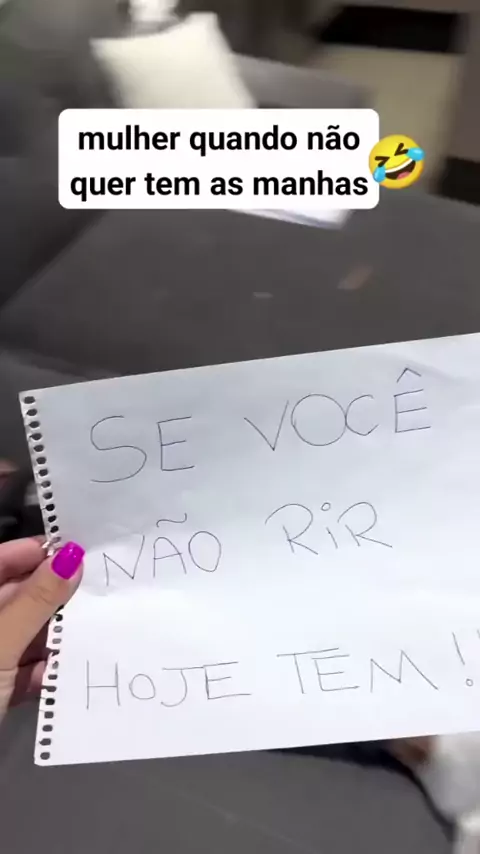 mulher quando não
quer tem as manhas🤣
SE VOCÊ
NÃO RiR
HOJE TEM!!